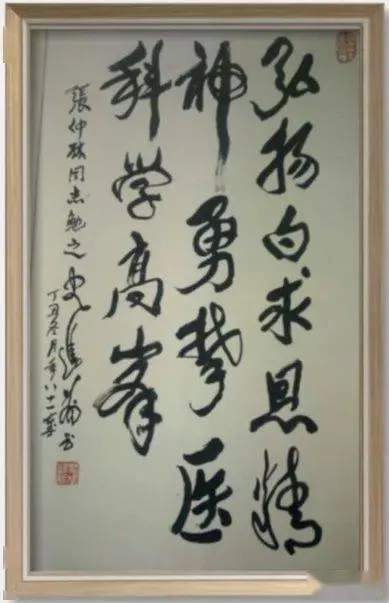 弘扬白求恩精
神勇攀医
科学高峰
張仲
同志勉之
丁丑冬月年八十一
书